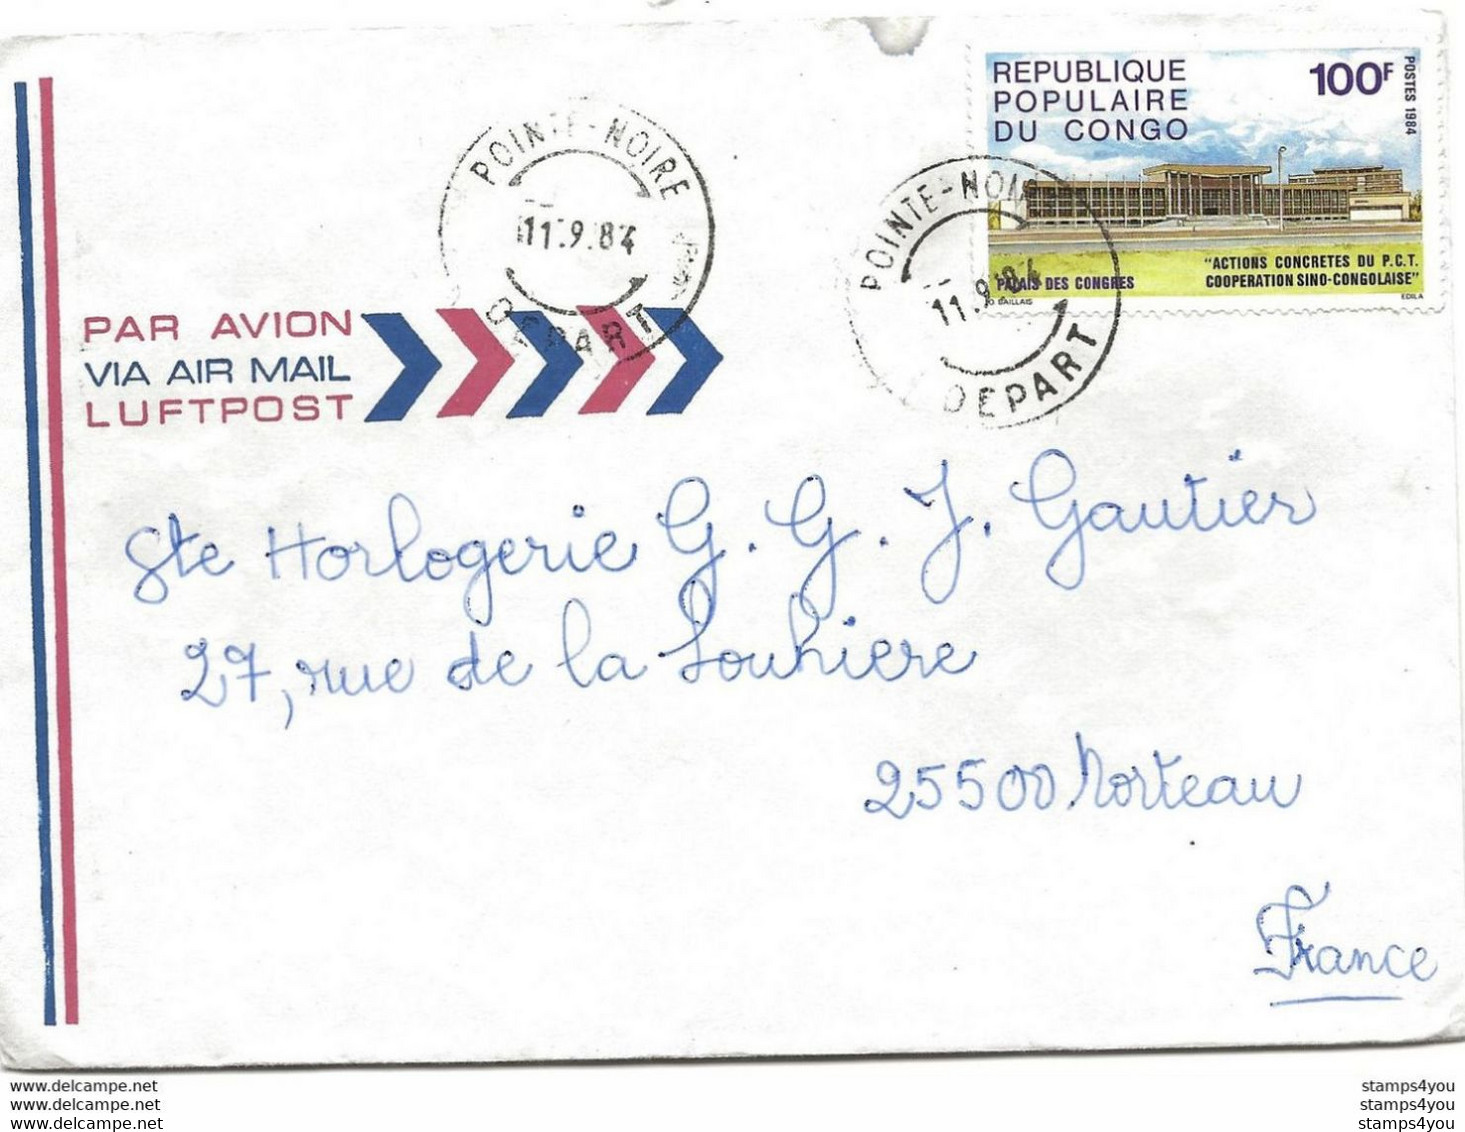 REPUBLIQUE
POPULAIRE
DU CONGO
100F
POSTES 1984
"ACTIONS CONCRETES DU P.C.T.
COOPERATION SINO-CONGOLAISE"
PALAIS DES CONGRES
EDILA
POINTE-NOIRE
11.9.84
DEPART
POINTE-NOI
11.9.84
DEPART
PAR AVION
VIA AIR MAIL
LUFTPOST
Ste Horlogerie G. G. J. Gautier
27, rue de la Louhiere
25500 Morteau
France
www.delcampe.net
www.delcampe.net
www.delcampe.net
stamps4you
stamps4you
stamps4you